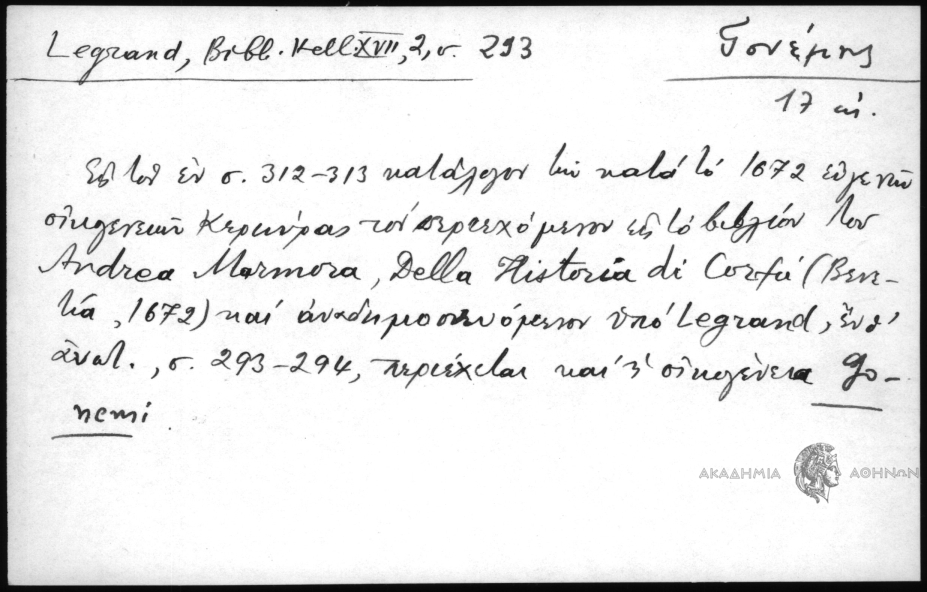 Legrand, Bibl. Hell. XVII, 2, σ. 293
Γονέμης
17 αἰ.
Εἰς τὸν ἐν σ. 312-313 κατάλογον τῶν κατὰ τὸ 1672 εὐγενῶν
οἰκογενειῶν Κερκύρας τὸν περιεχόμενον εἰς τὸ βιβλίον τοῦ
Andrea Marmora, Della Historia di Corfú (Βενε-
τία, 1672) καὶ ἀναδημοσιευόμενον ὑπὸ Legrand, ἔνθ'
ἀνωτ., σ. 293-294, περιέχεται καὶ ἡ οἰκογένεια Go-
nemi
ΑΚΑΔΗΜΙΑ ΑΘΗΝΩΝ